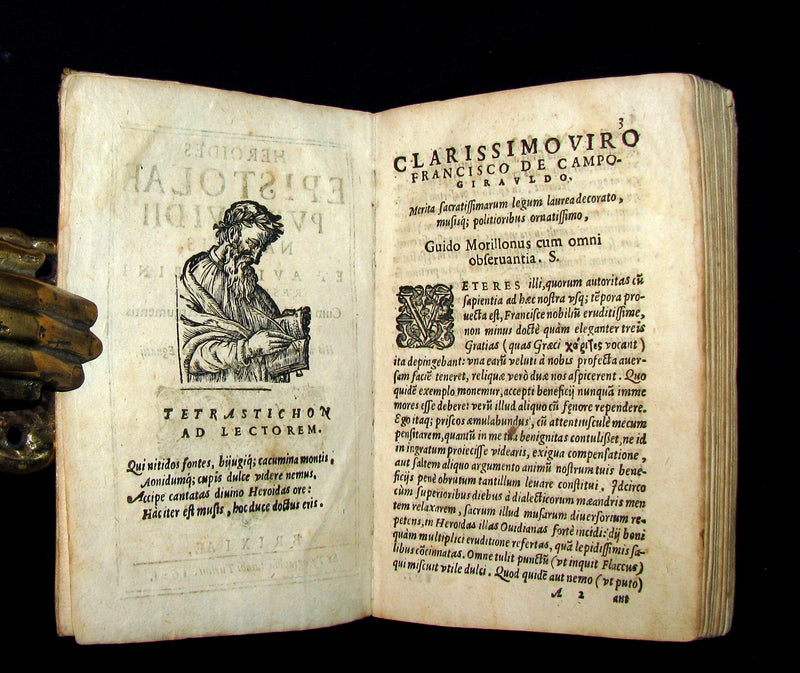 TETRASTICHON
AD LECTOREM.
Qui nitidos fontes, bijugiq; cacumina montis,
Aonidumq; cupis dulce videre nemus,
Accipe cantatas diuino Heroidas ore:
Hàc iter est musis, hoc duce doctus eris.
3
CLARISSIMO VIRO
FRANCISCO DE CAMPO-
GIRAVLDO,
Merita sacratissimarum legum laurea decorato,
musisq; politioribus ornatissimo,
Guido Morillonus cum omni
obseruantia. S.
VETERES illi, quorum autoritas cū
sapientia ad hæc nostra vsq; tēpora pro-
uecta est, Francisce nobiliū eruditissime,
non minus doctè quàm eleganter treis
Gratias (quas Græci χάριτες vocant)
ita depingebant: vna earū veluti à nobis profecta auer-
sam faciē teneret, reliquæ verò duæ nos aspicerent. Quo
quidē exemplo monemur, accepti beneficij nunquā imme
mores esse debere: verū illud aliquo cū fęnore rependere.
Ego itaq; priscos æmulabundus, cū attentiusculè mecum
pensitarem, quantū in me tua benignitas contulisset, ne id
in ingratum proiecisse videaris, exigua compensatione,
aut saltem aliquo argumento animū nostrum tuis bene-
ficijs penè obrutum tantillum leuare constitui. Idcirco
cùm superioribus diebus à dialecticorum mæandris men
tem relaxarem, sacrum illud musarum diuersorium re-
petens, in Heroidas illas Ouidianas fortè incidi: dij boni
quàm multiplici eruditione refertas, quā lepidissimis sa-
libus cōcinnatas. Omne tulit punctū (vt inquit Flaccus)
qui miscuit vtile dulci. Quod quidē aut nemo (vt puto)
A 2 aut